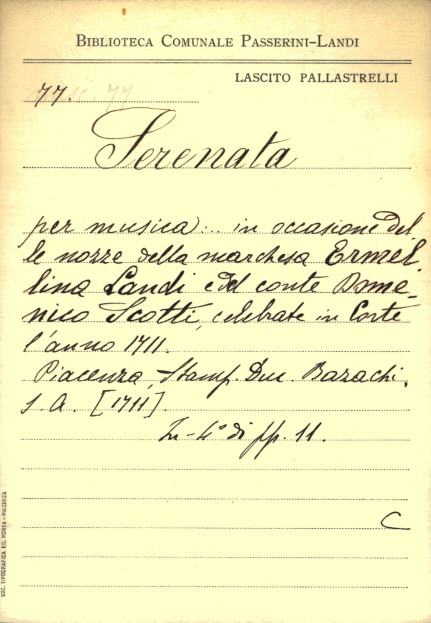 BIBLIOTECA COMUNALE PASSERINI-LANDI
LASCITO PALLASTRELLI
77.
Serenata
per musica... in occasione del
le nozze della marchesa Ermel
lina Landi e del conte Dome-
nico Scotti, celebrate in Corte
l'anno 1711.
Piacenza, Stamp. Duc. Bazachi,
s. a. [1711].
In-4° di pp. 11.
C
SOC. TIPOGRAFICA ED. PORTA - PIACENZA